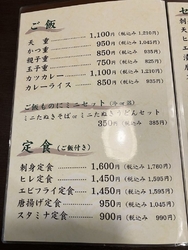 ご飯
天重 1,100円 (税込み 1,210円)
かつ重 950円 (税込み 1,045円)
親子重 850円 (税込み 935円)
玉子重 750円 (税込み 825円)
カツカレー 1,100円 (税込み 1,210円)
カレーライス 850円 (税込み 935円)
ご飯ものにミニセット (冷or温)
ミニたぬきそば or ミニたぬきうどんセット
350円 (税込み 385円)
定食 (ご飯付き)
刺身定食 1,600円 (税込み 1,760円)
ヒレ定食 1,450円 (税込み 1,595円)
エビフライ定食 1,450円 (税込み 1,595円)
唐揚げ定食 950円 (税込み 1,045円)
スタミナ定食 900円 (税込み 990円)